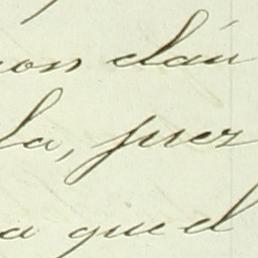 con cláu
la, pues
a que el